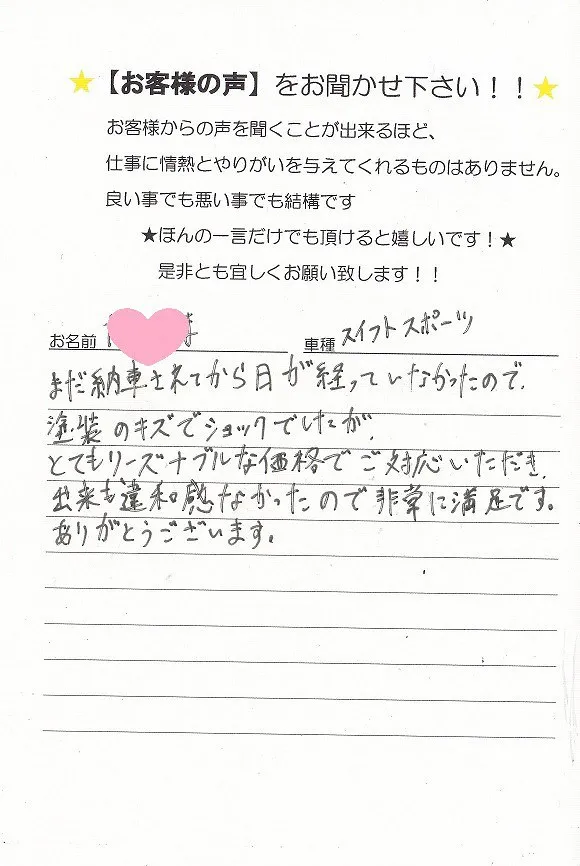 ★【お客様の声】をお聞かせ下さい！！★
お客様からの声を聞くことが出来るほど、
仕事に情熱とやりがいを与えてくれるものはありません。
良い事でも悪い事でも結構です
★ほんの一言だけでも頂けると嬉しいです！★
是非とも宜しくお願い致します！！
お名前 様 車種 スイフトスポーツ
まだ納車されてから日が経っていなかったので、
塗装のキズでショックでしたが、
とてもリーズナブルな価格でご対応いただき、
出来も違和感なかったので非常に満足です。
ありがとうございます。